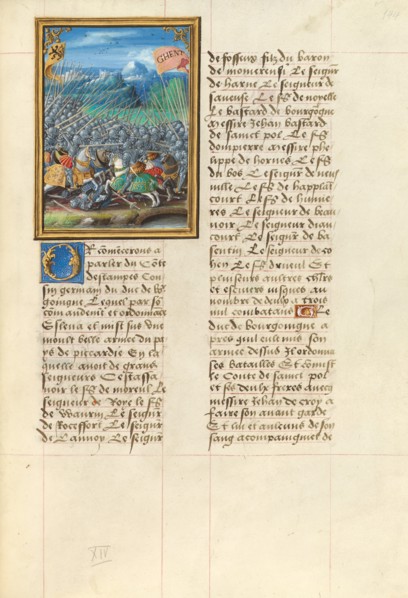 GHENT
Or comēcerons a
parler du Cōte
destampes Cou
sin germain du duc de bō
goingne Lequel par so
com̄andemēt et ordonnāce
Esleua et mist sus vne
moult belle armee du pa
ys de piccardie En la
quelle auoit de grans
seigneurs Cestassa
uoir le fs de moreul Le
seigneur de Roye le fs
de Waurin Le seigur
de Rocefort Le seigur
de Lannoy Le seigur
de fosseux filz du baron
de momerensi Le seigur
de harne Le seigneur de
saueuse Le fs de noyelle
Le bastard de bourgoigne
messire Jehan bastard
de sainct pol Le fs
dompierre messire phe
lippe de hornes Le fs
du bos Le seigur de neuf
uille Le fs de happlin
court Le fs de humie
res Le seigneur de beau
uoir Le seigneur diau
court Le seigur de ba
sentin Le seigneur de co
hen Le fs Et
pluseurs aultres chlrs
et escuiers iusques au
nombre de deux a trois
mil combatans Le
duc de bourgoingne a
pres quil eult mis son
armee dessus Il ordonna
ses batailles Et com̄ist
le Conte de sainct pol
et ses deulx freres auecq
messire Jehan de croy a
faire son auant garde
Et lui et aulcuns de son
sang acompaigniet de
XIV